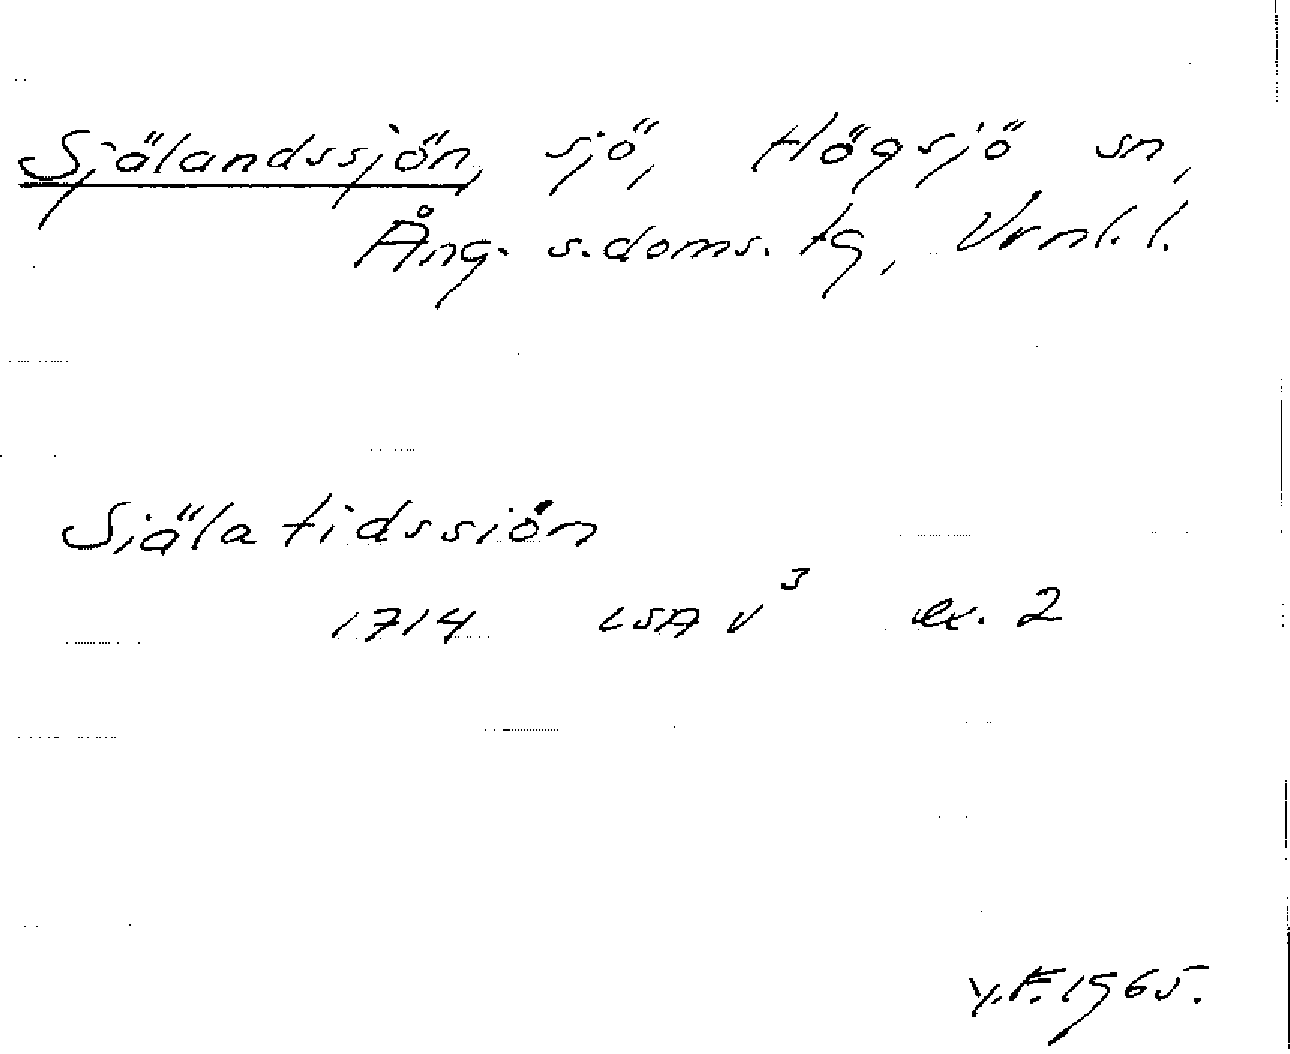 Själandssjön, sjö, Högsjö sn,
Ång. s. doms. tg, Vrnl. l.
Siäla tidssiön
1714 LSA V³ ex. 2
Y.F. 1965.